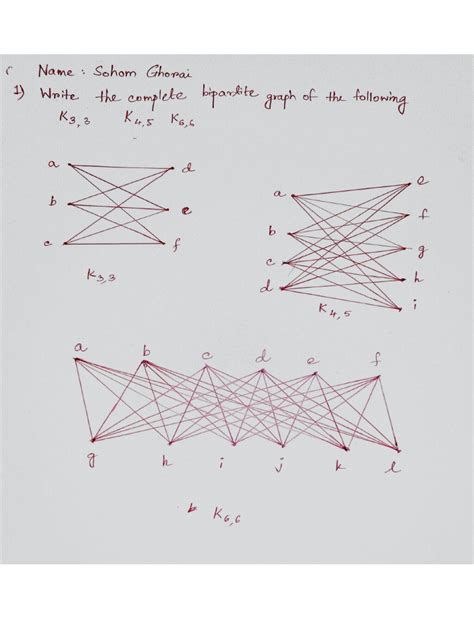 Name : Sohom Ghorai
1) Write the complete bipartite graph of the following
K3,3 K4,5 K6,6
a d
b e
c f
K3,3
a e
b f
c g
d h
i
K4,5
a b c d e f
g h i j k l
K6,6